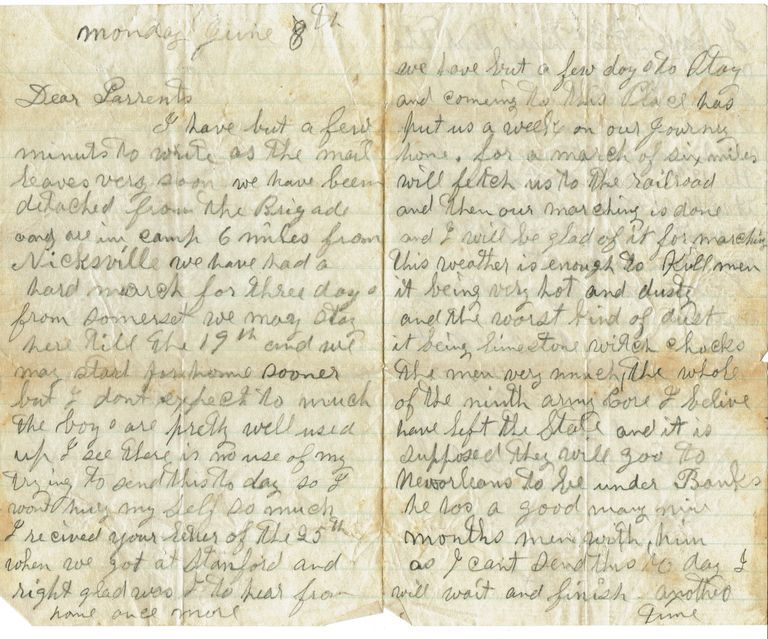 monday June 8th
Dear Parrents
I have but a few
minuts to write as the mail
leaves very soon we have been
detached from the Brigade
and are in camp 6 miles from
Nicksville we have had a
hard march for three days
from somerset we may stay
here till the 19th and we
may start for home sooner
but I dont expect to much
the boys are pretty well used
up I see there is no use of my
trying to send this to day so I
wont hury my self so much
I recived your letter of the 25th
when we got at Stanford and
right glad was I to hear from
home once more
we have but a few days to stay
and comeing to this Place has
put us a week on our Journey
home. for a march of six miles
will fetch us to the railroad
and then our marching is done
and I will be glad of it for marching
this weather is enough to Kill men
it being very hot and dusty
and the worst kind of dust
it being limestone witch chocks
the men very much, the whole
of the ninth army Core I belive
have left the State and it is
supposed they will goo to
Neworleans to be under Banks
he has a good many nine
months men with him
as I cant send this to day I
will wait and finish another
time